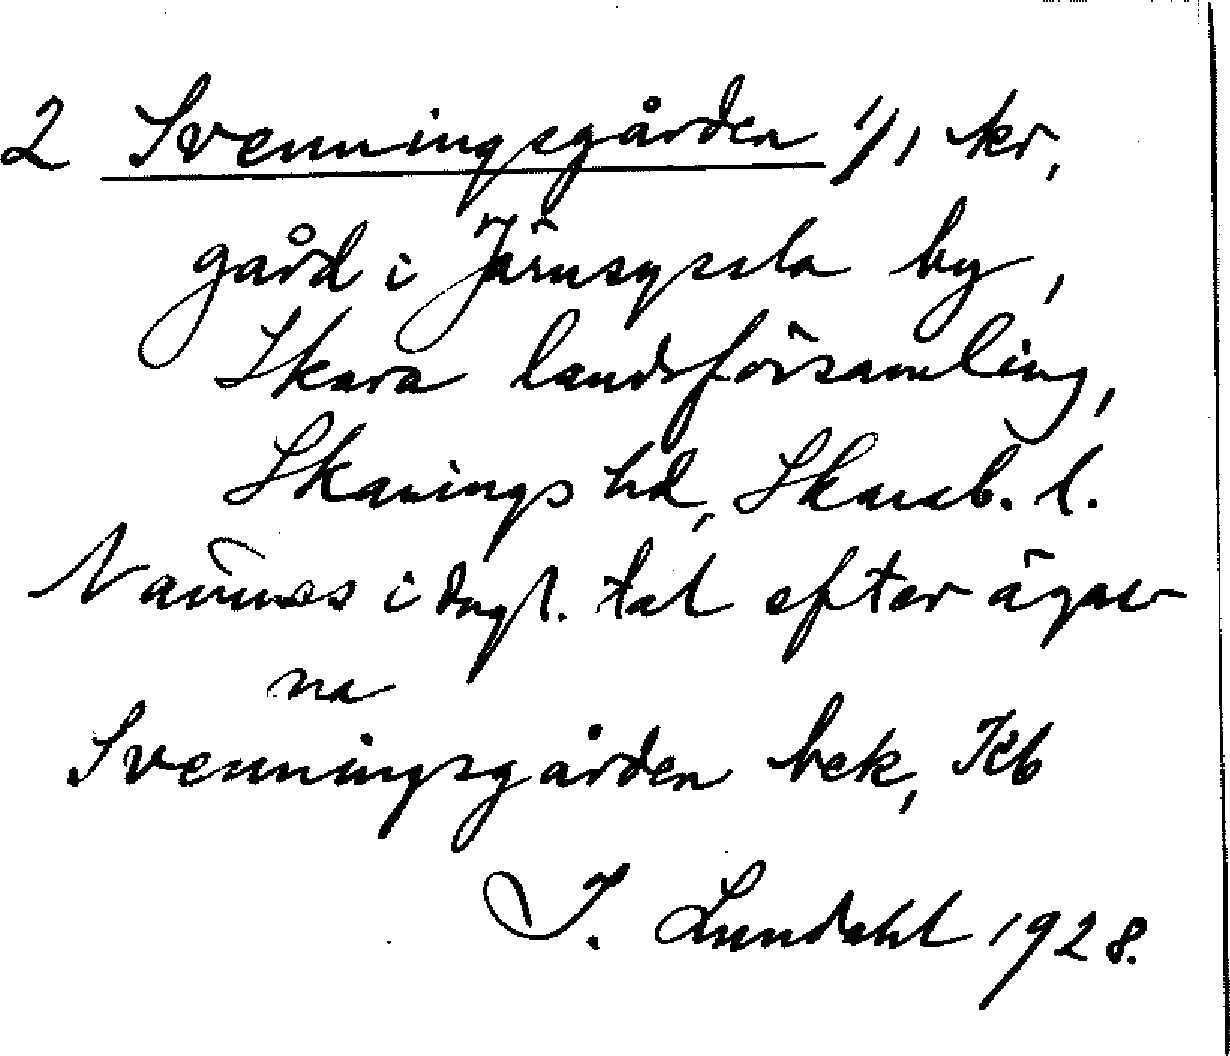 2 Svenningsgården 1/1 kr,
gård i Järnsyssla by,
Skara landsförsamling,
Skånings hd, Skarab. l.
Namnes i dagl. tal efter ägar
na
Svenningsgården bek, Kb
I. Lundahl 1928.